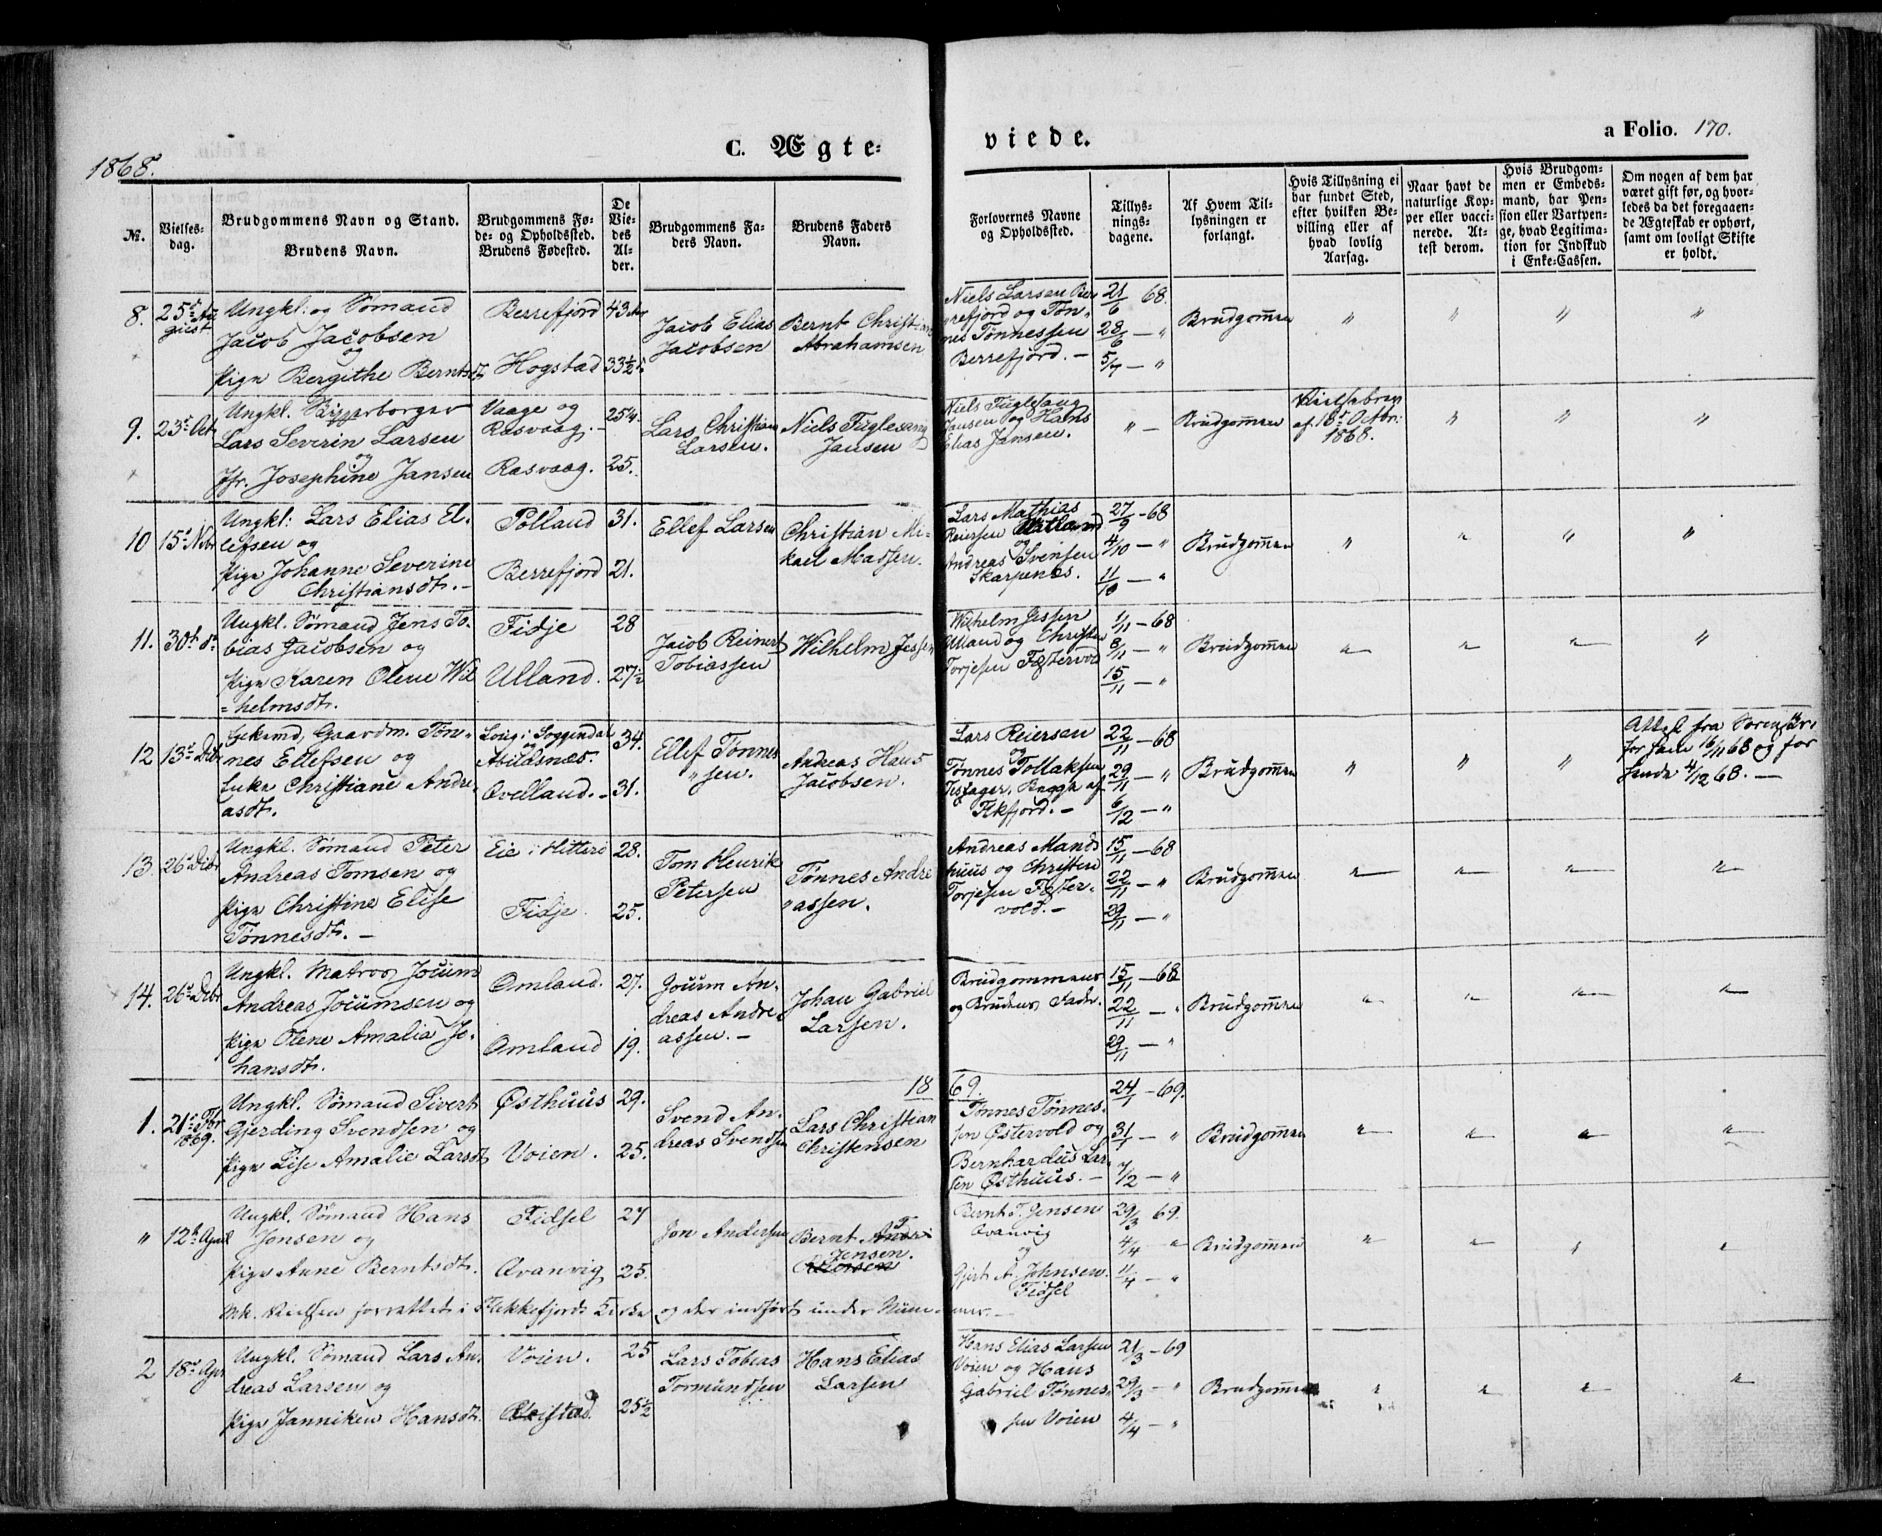 1868.
C. Ægte-
viede.
a Folio. 170.
№.
Vielses-
dag.
Brudgommens Navn og Stand.
Brudens Navn.
Brudgommens Fø-
de- og Opholdssted.
Brudens Fødested.
De
Vie-
des
Al-
der.
Brudgommens Fa-
ders Navn.
Brudens Faders
Navn.
Forlovernes Navne
og Opholdssted.
Tillys-
nings-
dagene.
Af Hvem Til-
lysningen er
forlangt.
Hvis Tillysning ei
har fundet Sted,
efter hvilken Be-
villing eller af
hvad lovlig
Aarsag.
Naar havt de
naturlige Kop-
per eller vacci-
nerede. At-
test derom.
Hvis Brudgom-
men er Embeds-
mand, har Pen-
sion eller Vartpen-
ge, hvad Legitima-
tion for Indskud
i Enke-Cassen.
Om nogen af dem har
været gift før, og hvor-
ledes da det foregaaen-
de Ægteskab er ophørt,
samt om lovligt Skifte
er holdt.
8.
25de Au-
gust
Ungkl: og Sømand
Jacob Jacobsen
og
Pige Bergithe Berntsdt
Berrefjord
Hogstad
43
33½
Jacob Elias
Jacobsen
Bernt Christian
Abrahamsen
Niels Larsen Ber
refjord og Tøn-
nes Tønnessen
Berrefjord. —
21/6 68.
28/6 — "
5/7 — "
Brudgommen
" " " "
9.
23de Oct
Ungkl.
Lars Severin Larsen
og
Jfr. Josephine Jansen
Vaage og
Rasvaag. —
Rasvaag.
25¼
25.
Lars Christian
Larsen.
Niels Fuglesang
Jansen
Niels Fuglesang
Jansen og Hans
Elias Jansen.
" —
Brudgommen
Vielsebrev
af 18de Octbr:
1868.
" " "
10
15de Nvbr
Ungkl: Lars Elias El-
lefsen og
Pige Johanne Severine
Christiansdt. —
Polland
Berrefjord
31.
21.
Ellef Larsen
Christian Mi-
kael Madsen.
Lars Mathias
Reiersen
og
Andreas Svensen
Skarpenes.
27/9 — 68
4/10 — "
11/10 — "
Brudgommen
" " " "
11.
30te do
Ungkl. Sømand Jens To-
bias Jacobsen og
Pige Karen Olene Wil
=helmsdt.
Fidje
Ulland.
28
27½
Jacob Reinert
Tobiassen
Wilhelm Jessen
Wilhelm Jessen
Ulland og Christen
Torjesen Fæstervold
1/11 — 68
8/11 — "
15/11 — "
Brudgommen
" " " "
12
13de Dcbr
Gaardm. Tøn-
nes Ellefsen og
Enke Christiane Andre
asdt.
i Soggendal
og
Abildsnæs.
Ovelland. —
34.
31.
Ellef Tønnes
"sen.
Andreas Hans
Jacobsen.
Lars Reiersen
og
Tønnes Tollaksen
Tisager, Begge af
Flkfjord. —
22/11 — 68
29/11 — "
6/12 — "
Brudgommen
" " "
Attest fra
for ham 16/11 68 og for
hende 4/12 68. —
13.
26de Dcbr
Ungkl. Sømand Peter
Andreas Tomsen og
Pige Christine Elise
Tønnesdt. —
Eie i Hitterø
Fidje.
28.
25.
Tom Henrik
Petersen
Tønnes Andre
"assen.
Andreas Mands
huus og Christen
Torjesen Fæster-
vold. —
15/11 — 68
22/11 — "
29/11 — "
Brudgommen
" " " "
14.
26de Dcbr
Ungkl. Matros Jocum
Andreas Jocumsen og
Pige Olene Amalia Jo-
hansdt.
Omland.
Omland
27.
19.
Jocum An-
dreas Andre-
assen. —
Johan Gabriel
Larsen.
Brudgommens
og Brudens Fader.
15/11 — 68
22/11 — "
29/11 — "
Brudgommen
" " " "
18 69.
1.
21de Fbr
1869.
Ungkl. Sømand Sivert
Gjerding Svendsen og
Pige Lise Amalie Larsdt
Østhuus
Voien.
29.
25.
Svend An-
dreas Svendsen
Lars Christian
Christensen
Tønnes Tønnes-
sen Østervold og
Bernhardus Lar-
sen Østhuus. —
24/1 — 69.
31/1 — "
7/2 — "
Brudgommen
" " " "
"
12te April
Ungkl. Sømand Hans
Jonsen og
Pige Anne Berntsdt.
Fidsel
Qvanvig
27
25.
Jon Andersen
Bernt T.
Jensen.
Bernt T. Jensen
Qvanvig
og
Gjert A. Johnsen.
Fidsel
29/3 69.
4/4 "
11/4 — "
Brudgommen
" " " "
Mk. Vielsen forrettet i Flekkefjords Kirke og der indført under Num-mer. —
2
18de Apr
Ungkl. Sømand Lars An-
dreas Larsen og
Pige Janniken Hansdt.
Voien.
25
25½
Lars Tobias
Tormundsen
Hans Elias
Larsen
Hans Elias Larsen
Voien og Hans
Gabriel Tønnes-
sen Voien
21/3 — 69
29/3 — "
4/4 — "
Brudgommen
" " " "